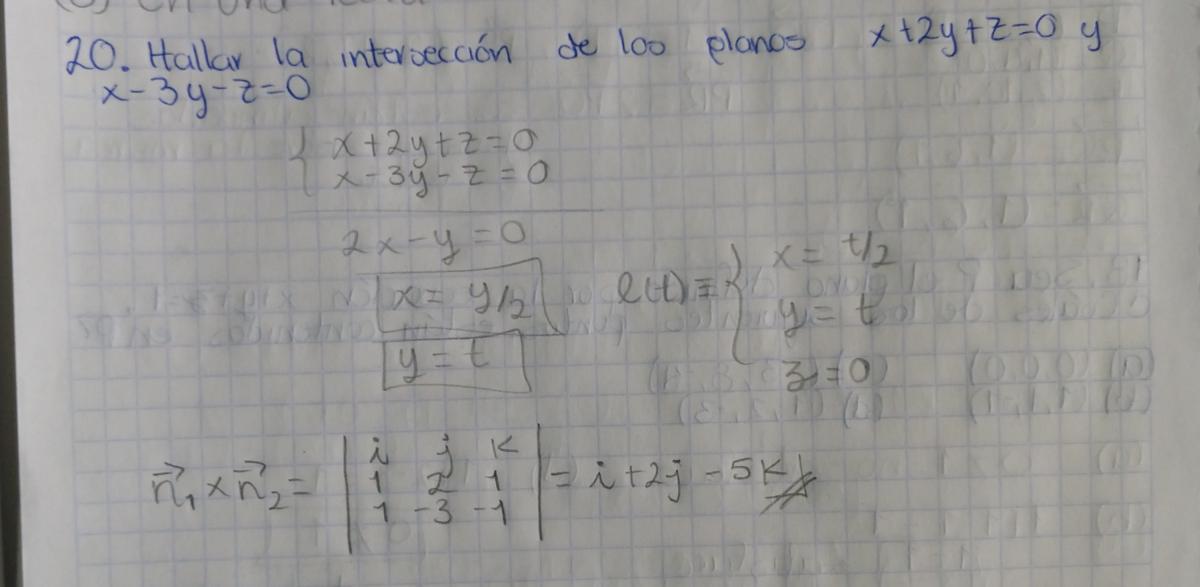 20. Hallar la intersección de los planos x+2y+z=0 y
x-3y-z=0
x+2y+z=0
x-3y-z=0
2x-y=0
x= y/2
y=t
l(t)=
x= t/2
y= t
z=0
n₁ × n₂ = | i j k
1 2 1
1 -3 -1 | = i+2j-5k